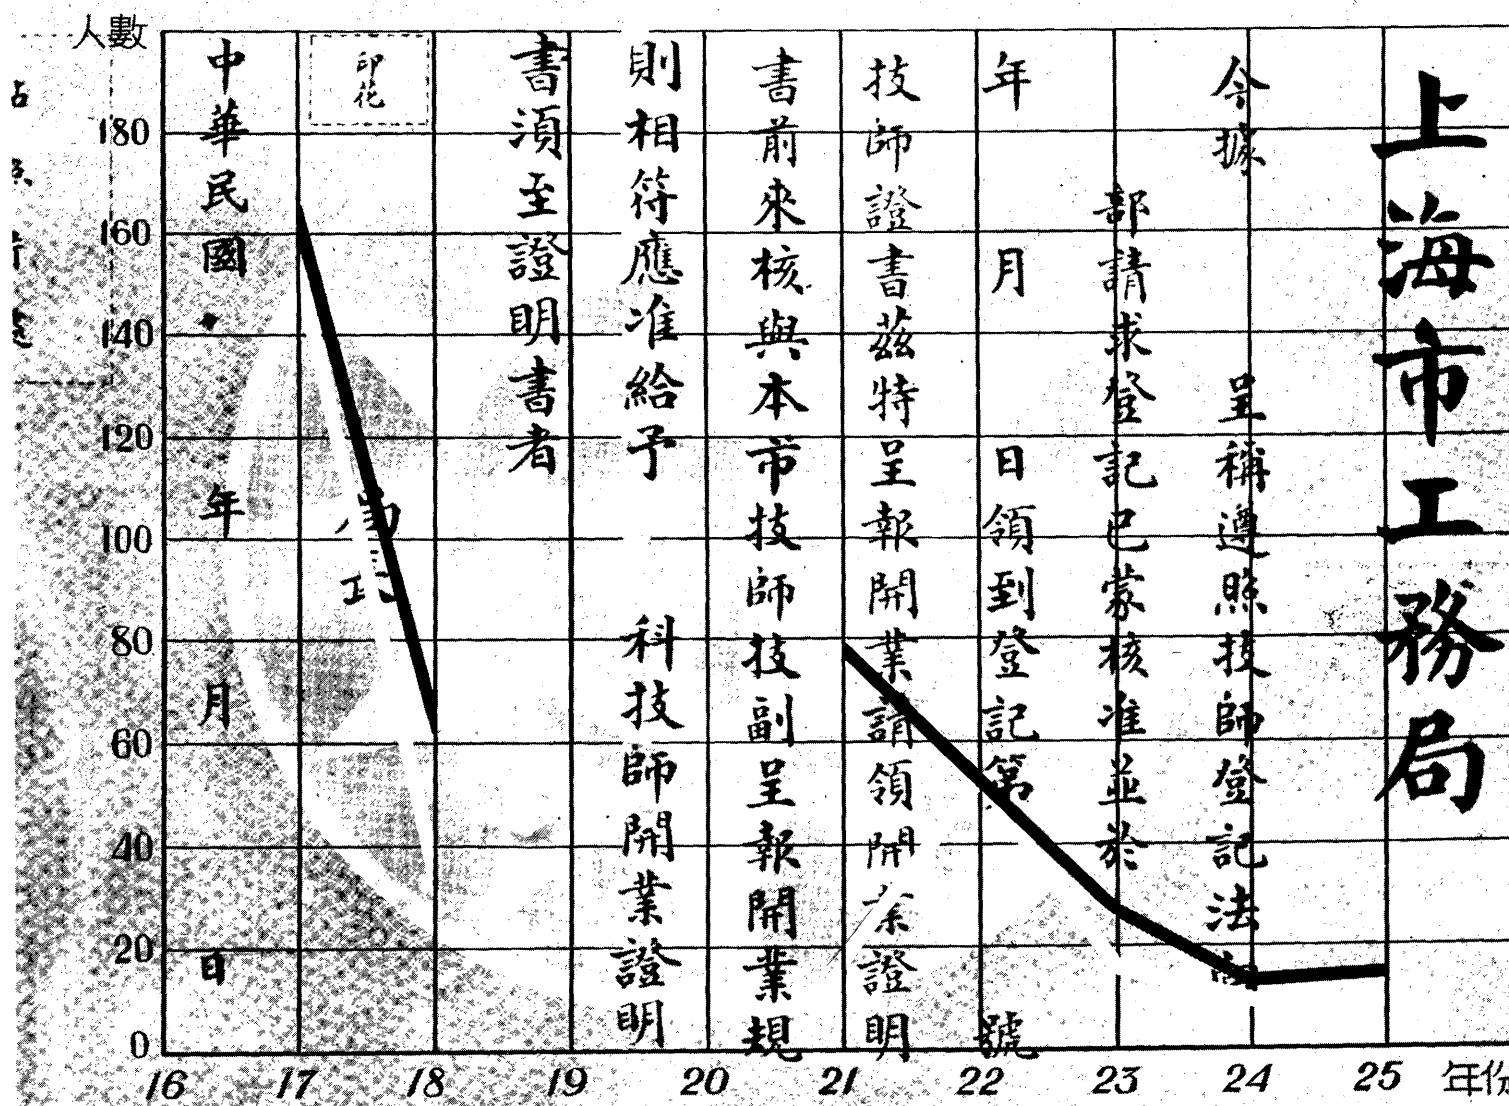 上海市工務局
今據 呈稱遵照技師登記法向
部請求登記已蒙核准並於
年 月 日領到登記第 號
技師證書茲特呈報開業請領開業證明
書前來核與本市技師技副呈報開業規
則相符應准給予 科技師開業證明
書須至證明書者
印花
中華民國 年 月 日
人數
180
160
140
120
100
80
60
40
20
0
16 17 18 19 20 21 22 23 24 25 年份